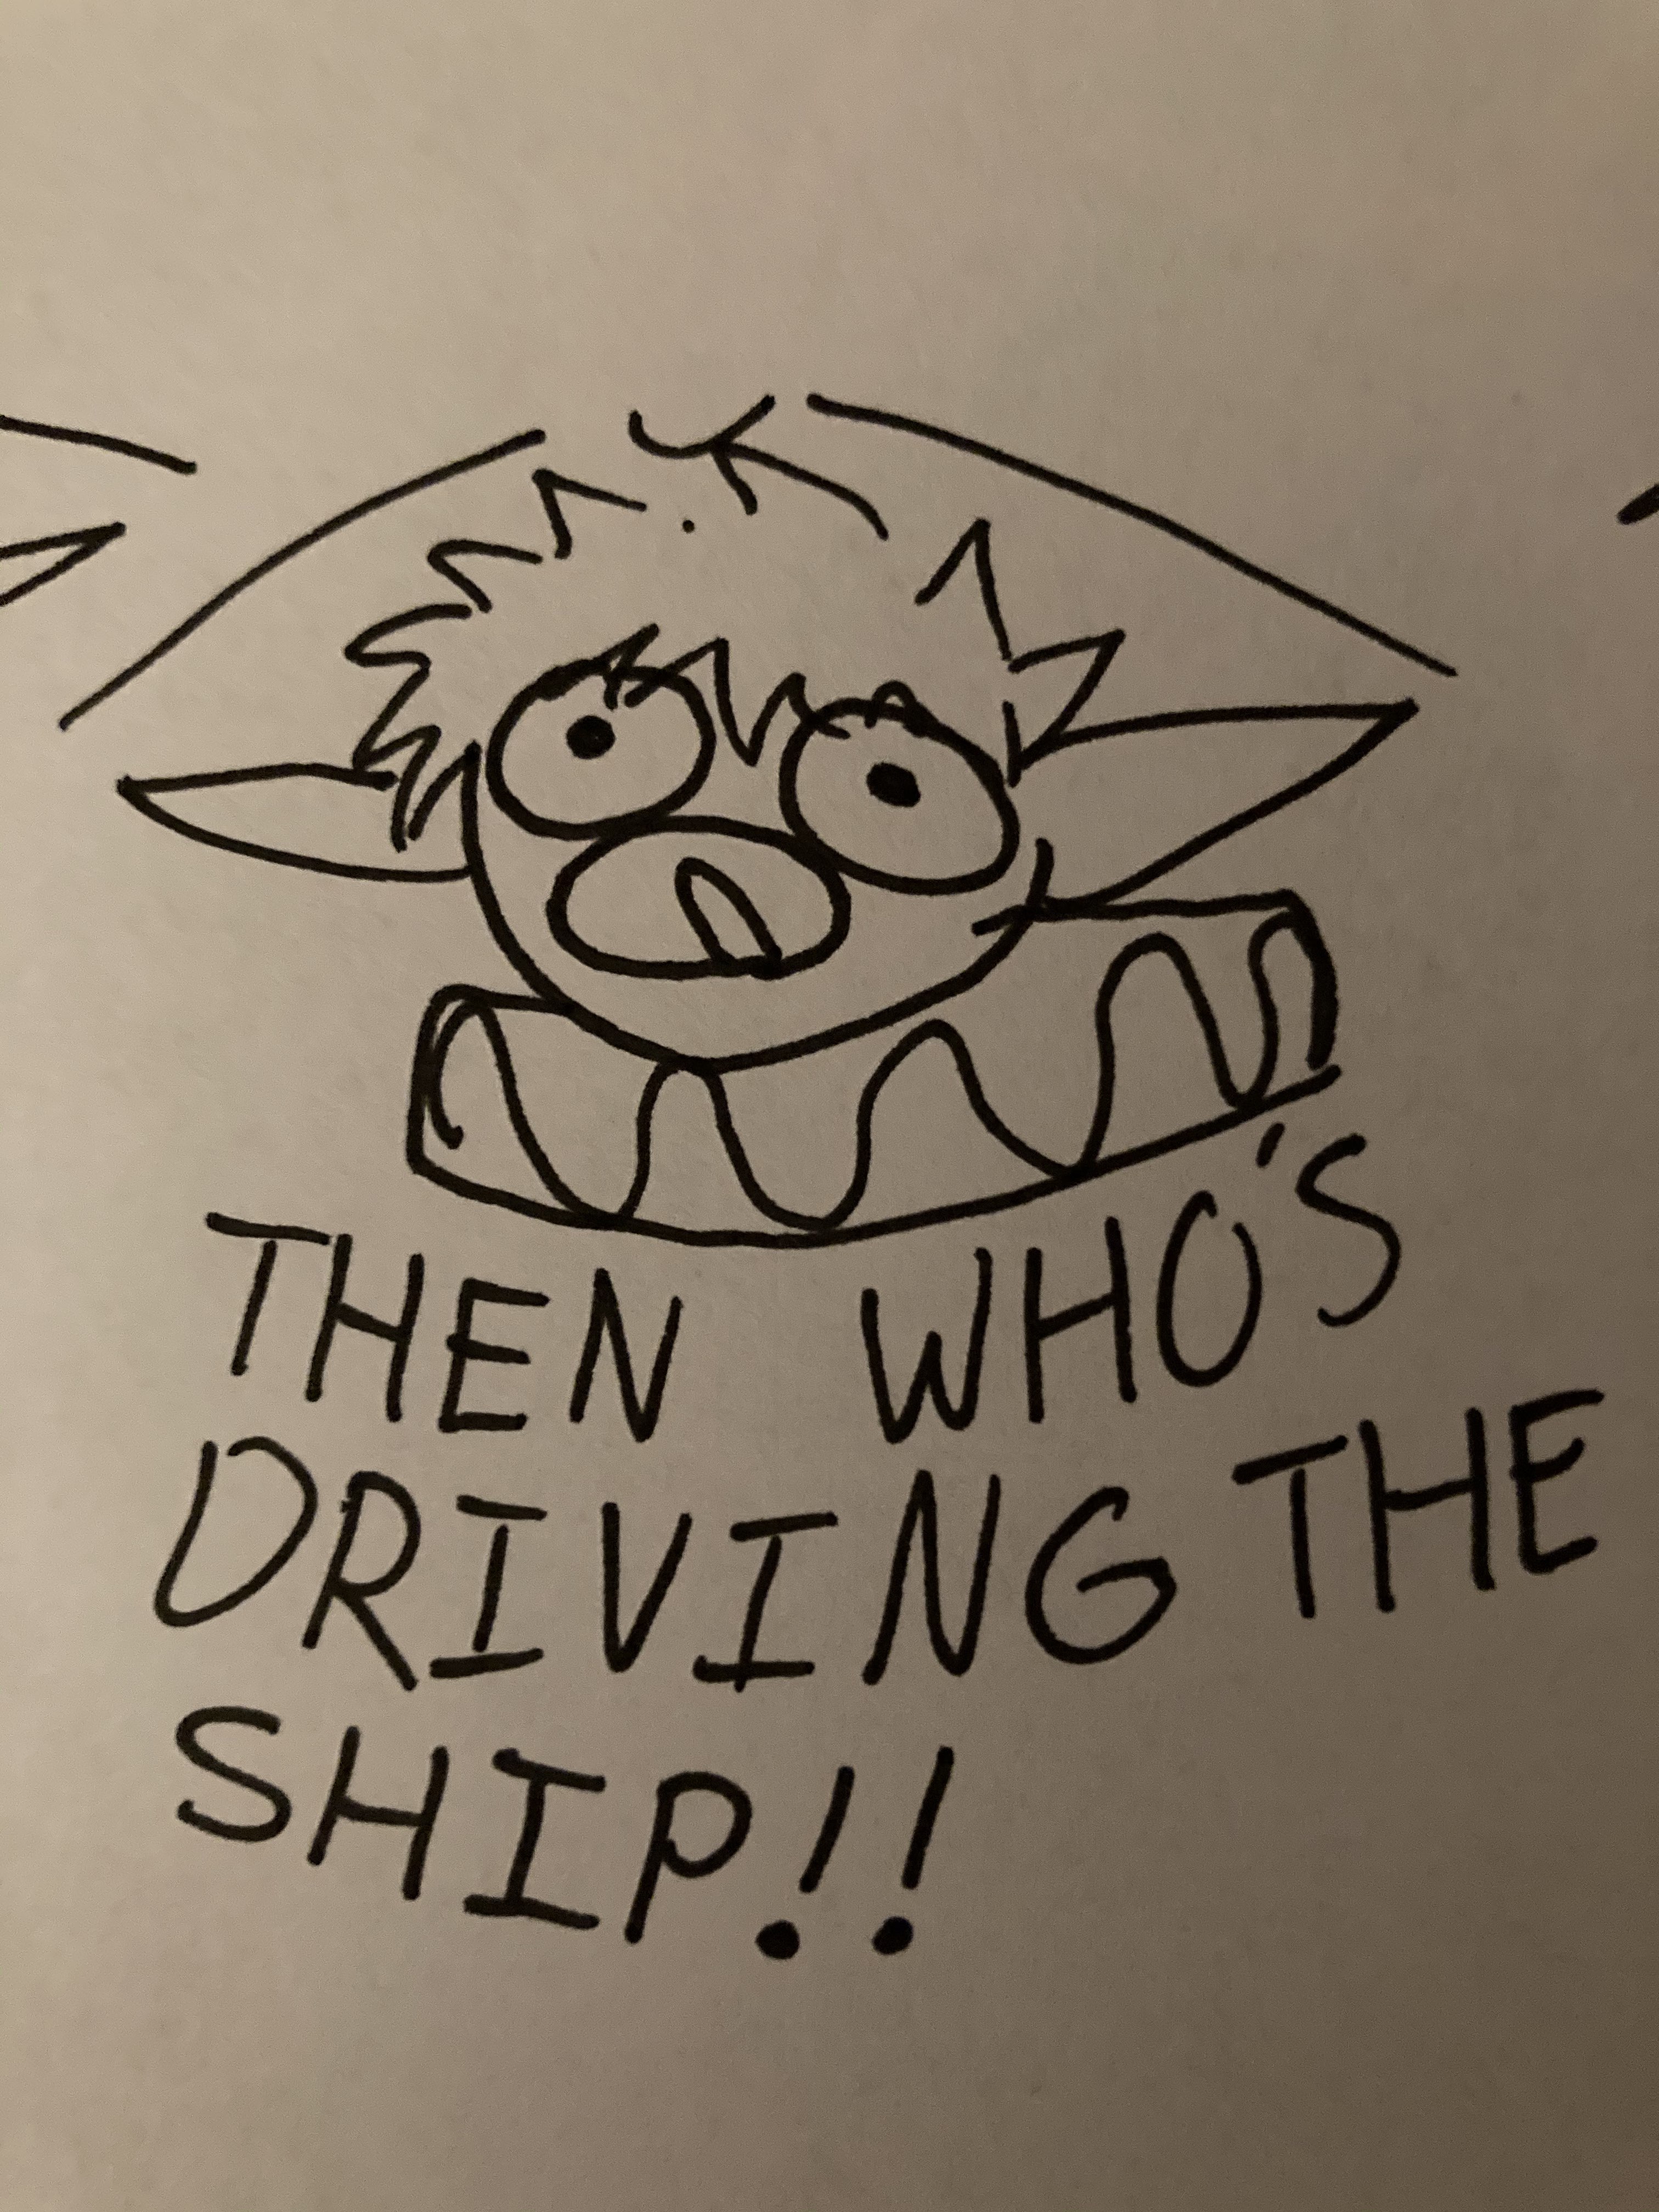 THEN WHO'S
DRIVING THE
SHIP!!